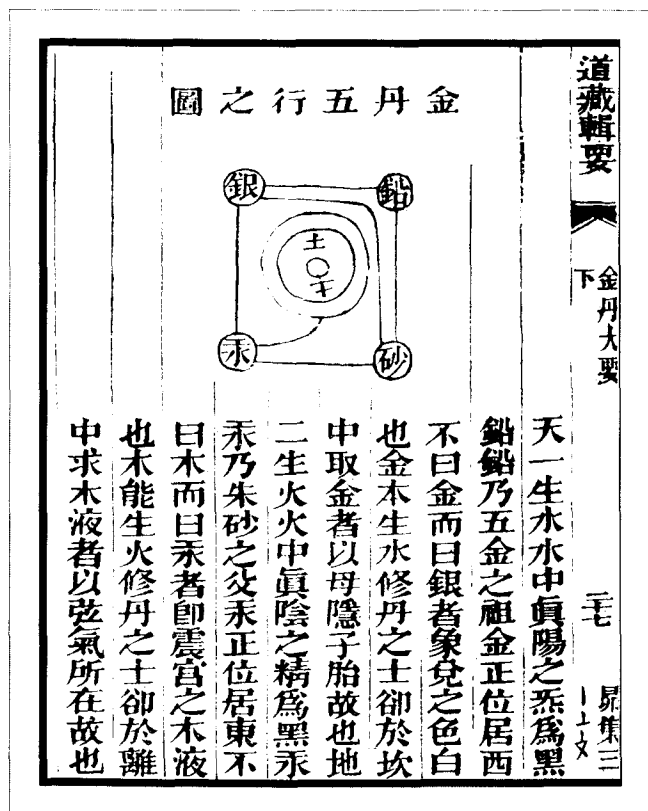 道藏輯要
金丹大要
下
三十七
昴集三
金丹五行之圖
銀
鉛
土
汞
砂
天一生水水中眞陽之炁爲黑
鉛鉛乃五金之祖金正位居西
不曰金而曰銀者象兌之色白
也金本生水修丹之士卻於坎
中取金者以母隱子胎故也地
二生火火中眞陰之精爲黑汞
汞乃朱砂之父汞正位居東不
曰木而曰汞者卽震宮之木液
也木能生火修丹之士卻於離
中求木液者以弦氣所在故也